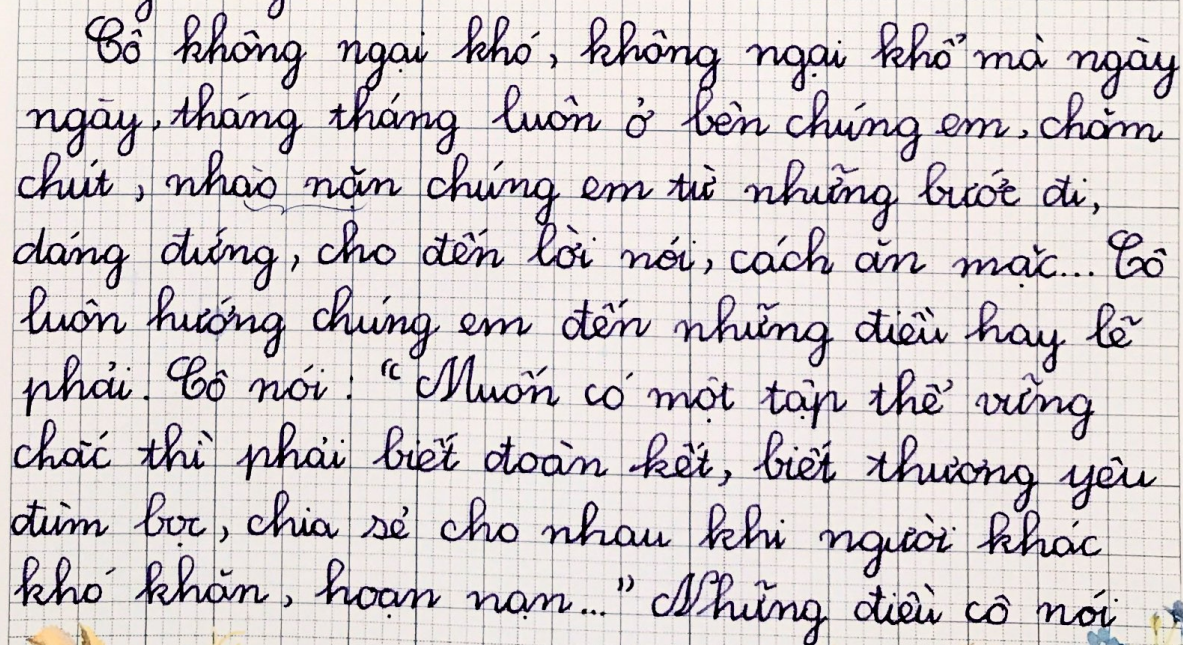 Cô không ngại khó, không ngại khổ mà ngày
ngày, tháng tháng luôn ở bên chúng em, chăm
chút, nhào nặn chúng em từ những bước đi,
dáng đứng, cho đến lời nói, cách ăn mặc... Cô
luôn hướng chúng em đến những điều hay lẽ
phải. Cô nói: "Muốn có một tập thể vững
chắc thì phải biết đoàn kết, biết thương yêu
đùm bọc, chia sẻ cho nhau khi người khác
khó khăn, hoạn nạn..." Những điều cô nói